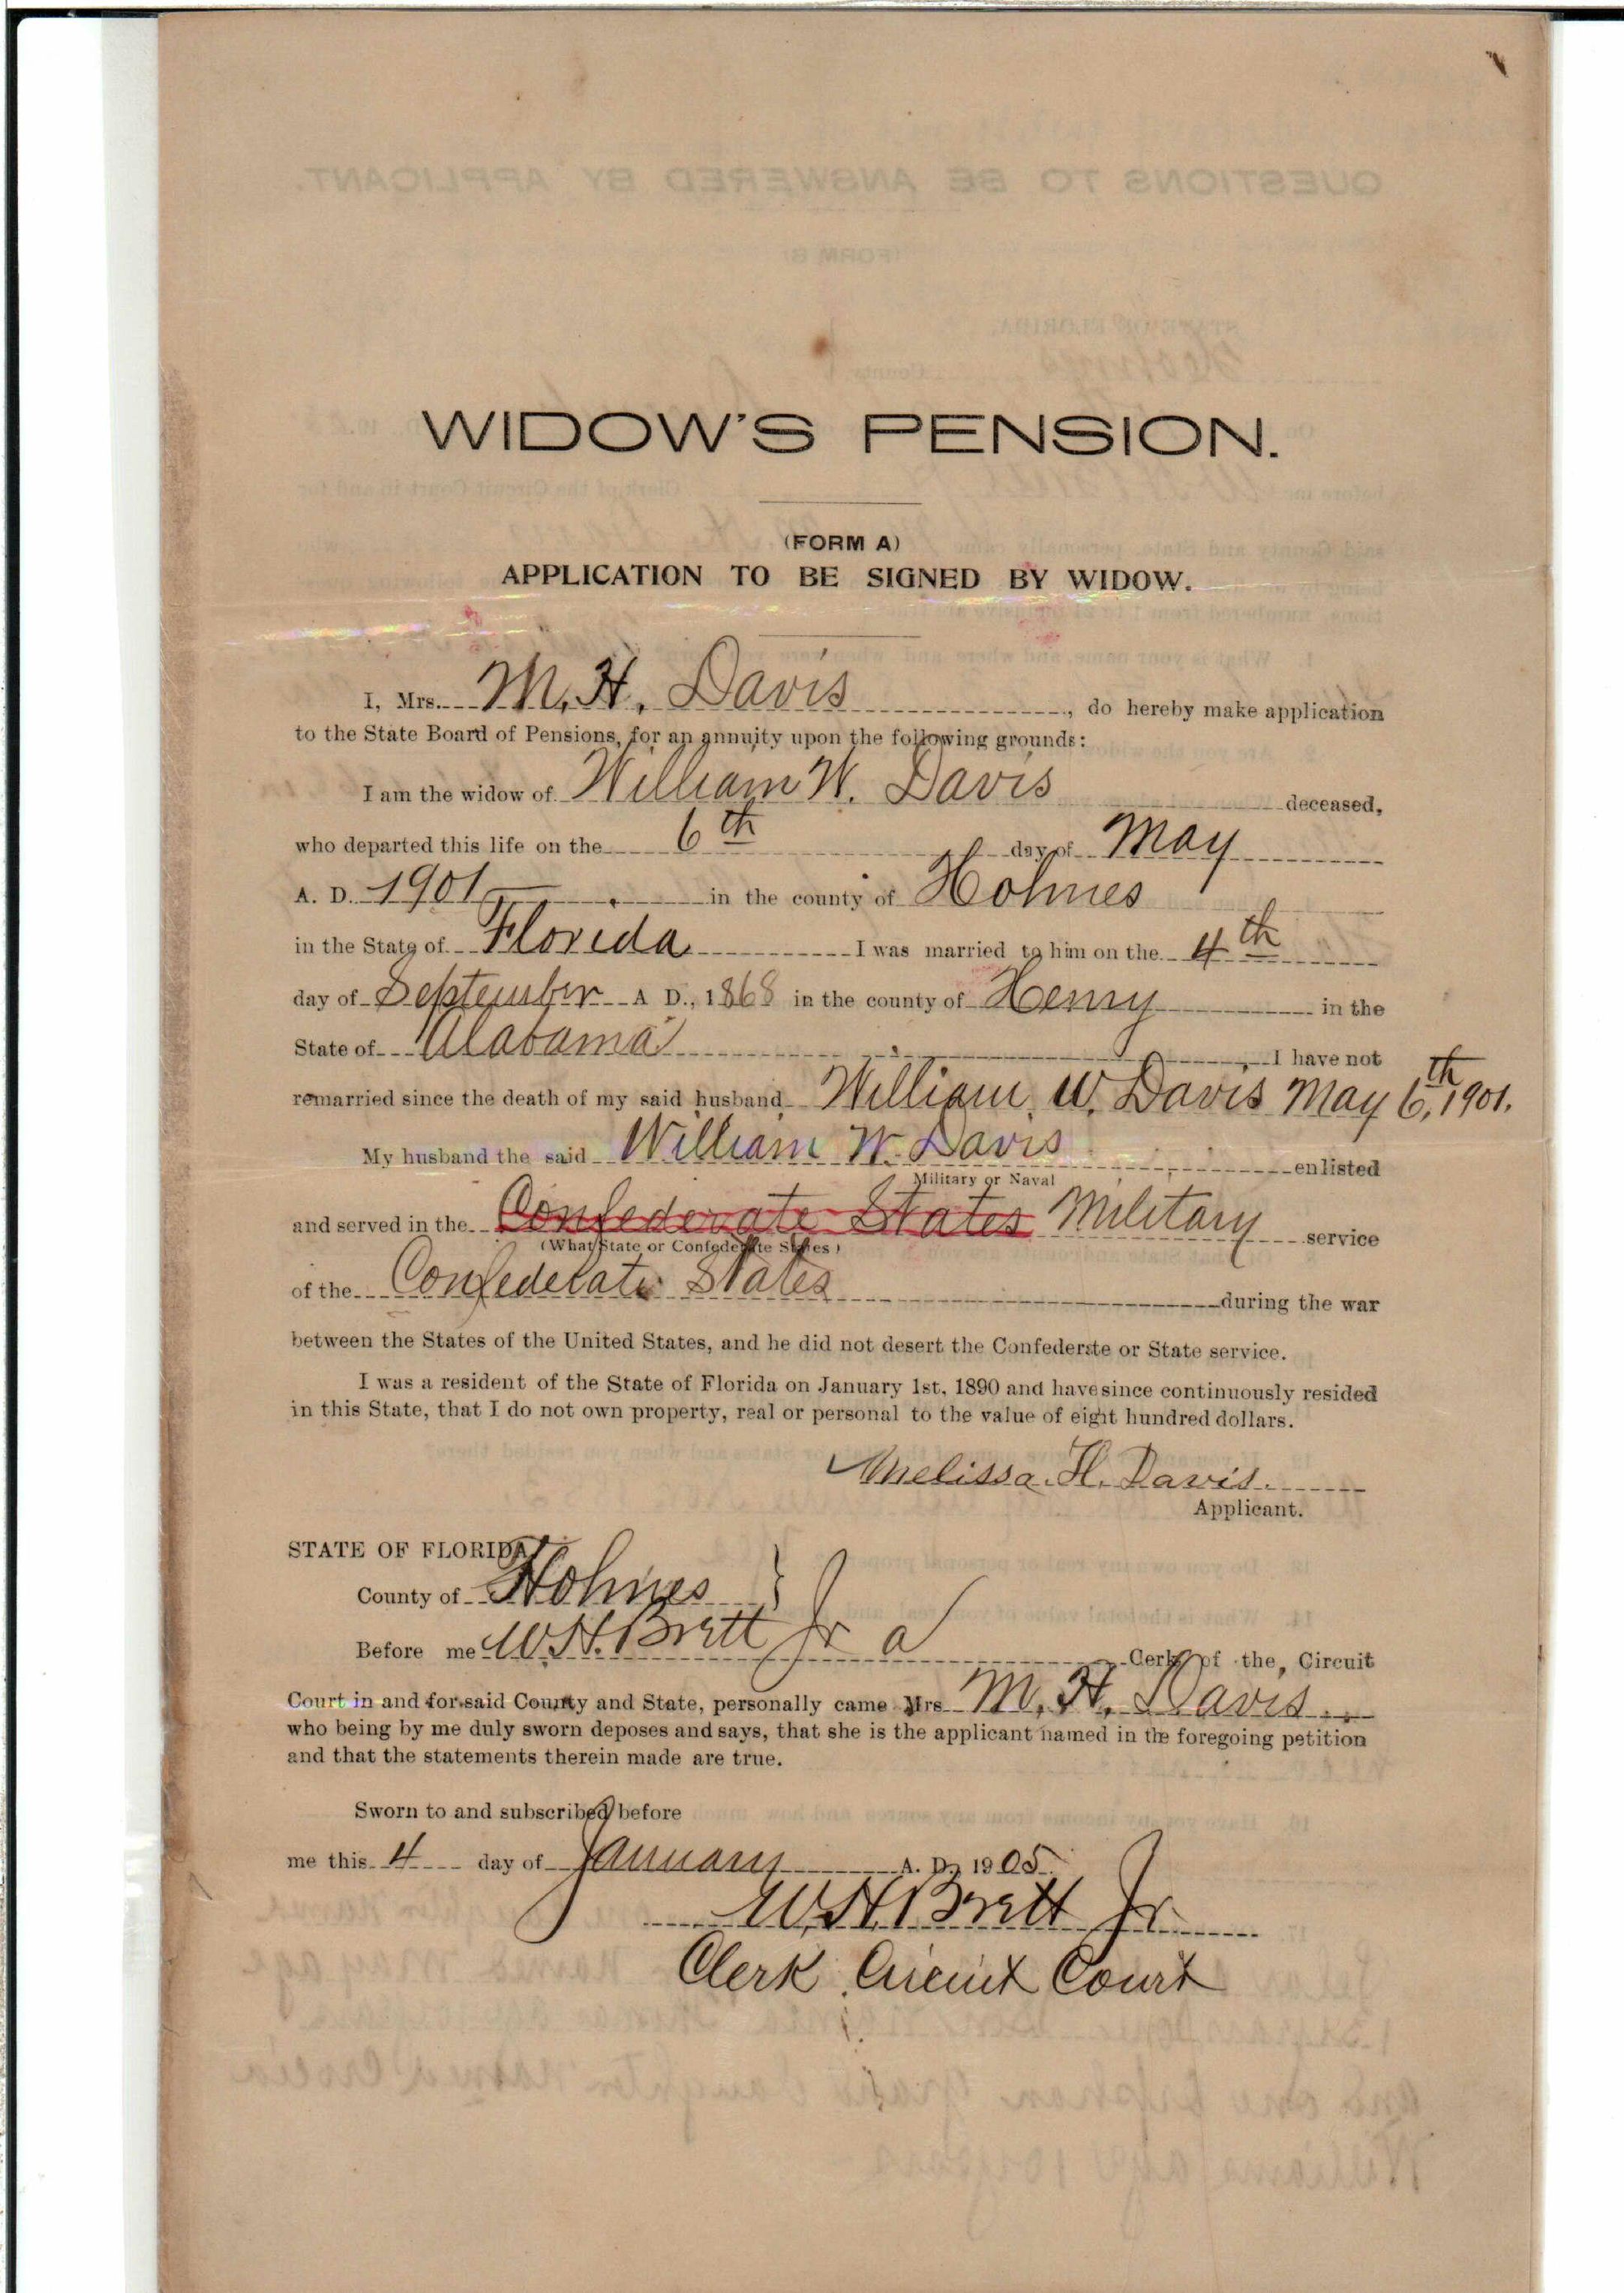 WIDOW'S PENSION.
(FORM A)
APPLICATION TO BE SIGNED BY WIDOW.
I, Mrs. M. H. Davis, do hereby make application
to the State Board of Pensions, for an annuity upon the following grounds:
I am the widow of William W. Davis deceased,
who departed this life on the 6th day of May
A. D. 1901 in the county of Holmes
in the State of Florida I was married to him on the 4th
day of September A D., 1868 in the county of Henry in the
State of Alabama, I have not
remarried since the death of my said husband William W. Davis May 6th, 1901.
My husband the said William W. Davis enlisted
Military or Naval
and served in the Confederate States Military service
(What State or Confederate States)
of the Confederate States during the war
between the States of the United States, and he did not desert the Confederate or State service.
I was a resident of the State of Florida on January 1st, 1890 and have since continuously resided
in this State, that I do not own property, real or personal to the value of eight hundred dollars.
Melissa. H. Davis.
Applicant.
STATE OF FLORIDA
County of Holmes }
Before me W. H. Brett Jr a Cerk of the, Circuit
Court in and for said County and State, personally came Mrs M. H. Davis
who being by me duly sworn deposes and says, that she is the applicant named in the foregoing petition
and that the statements therein made are true.
Sworn to and subscribed before
me this 4 day of January A. D. 1905
W H Brett Jr.
Clerk Circuit Court